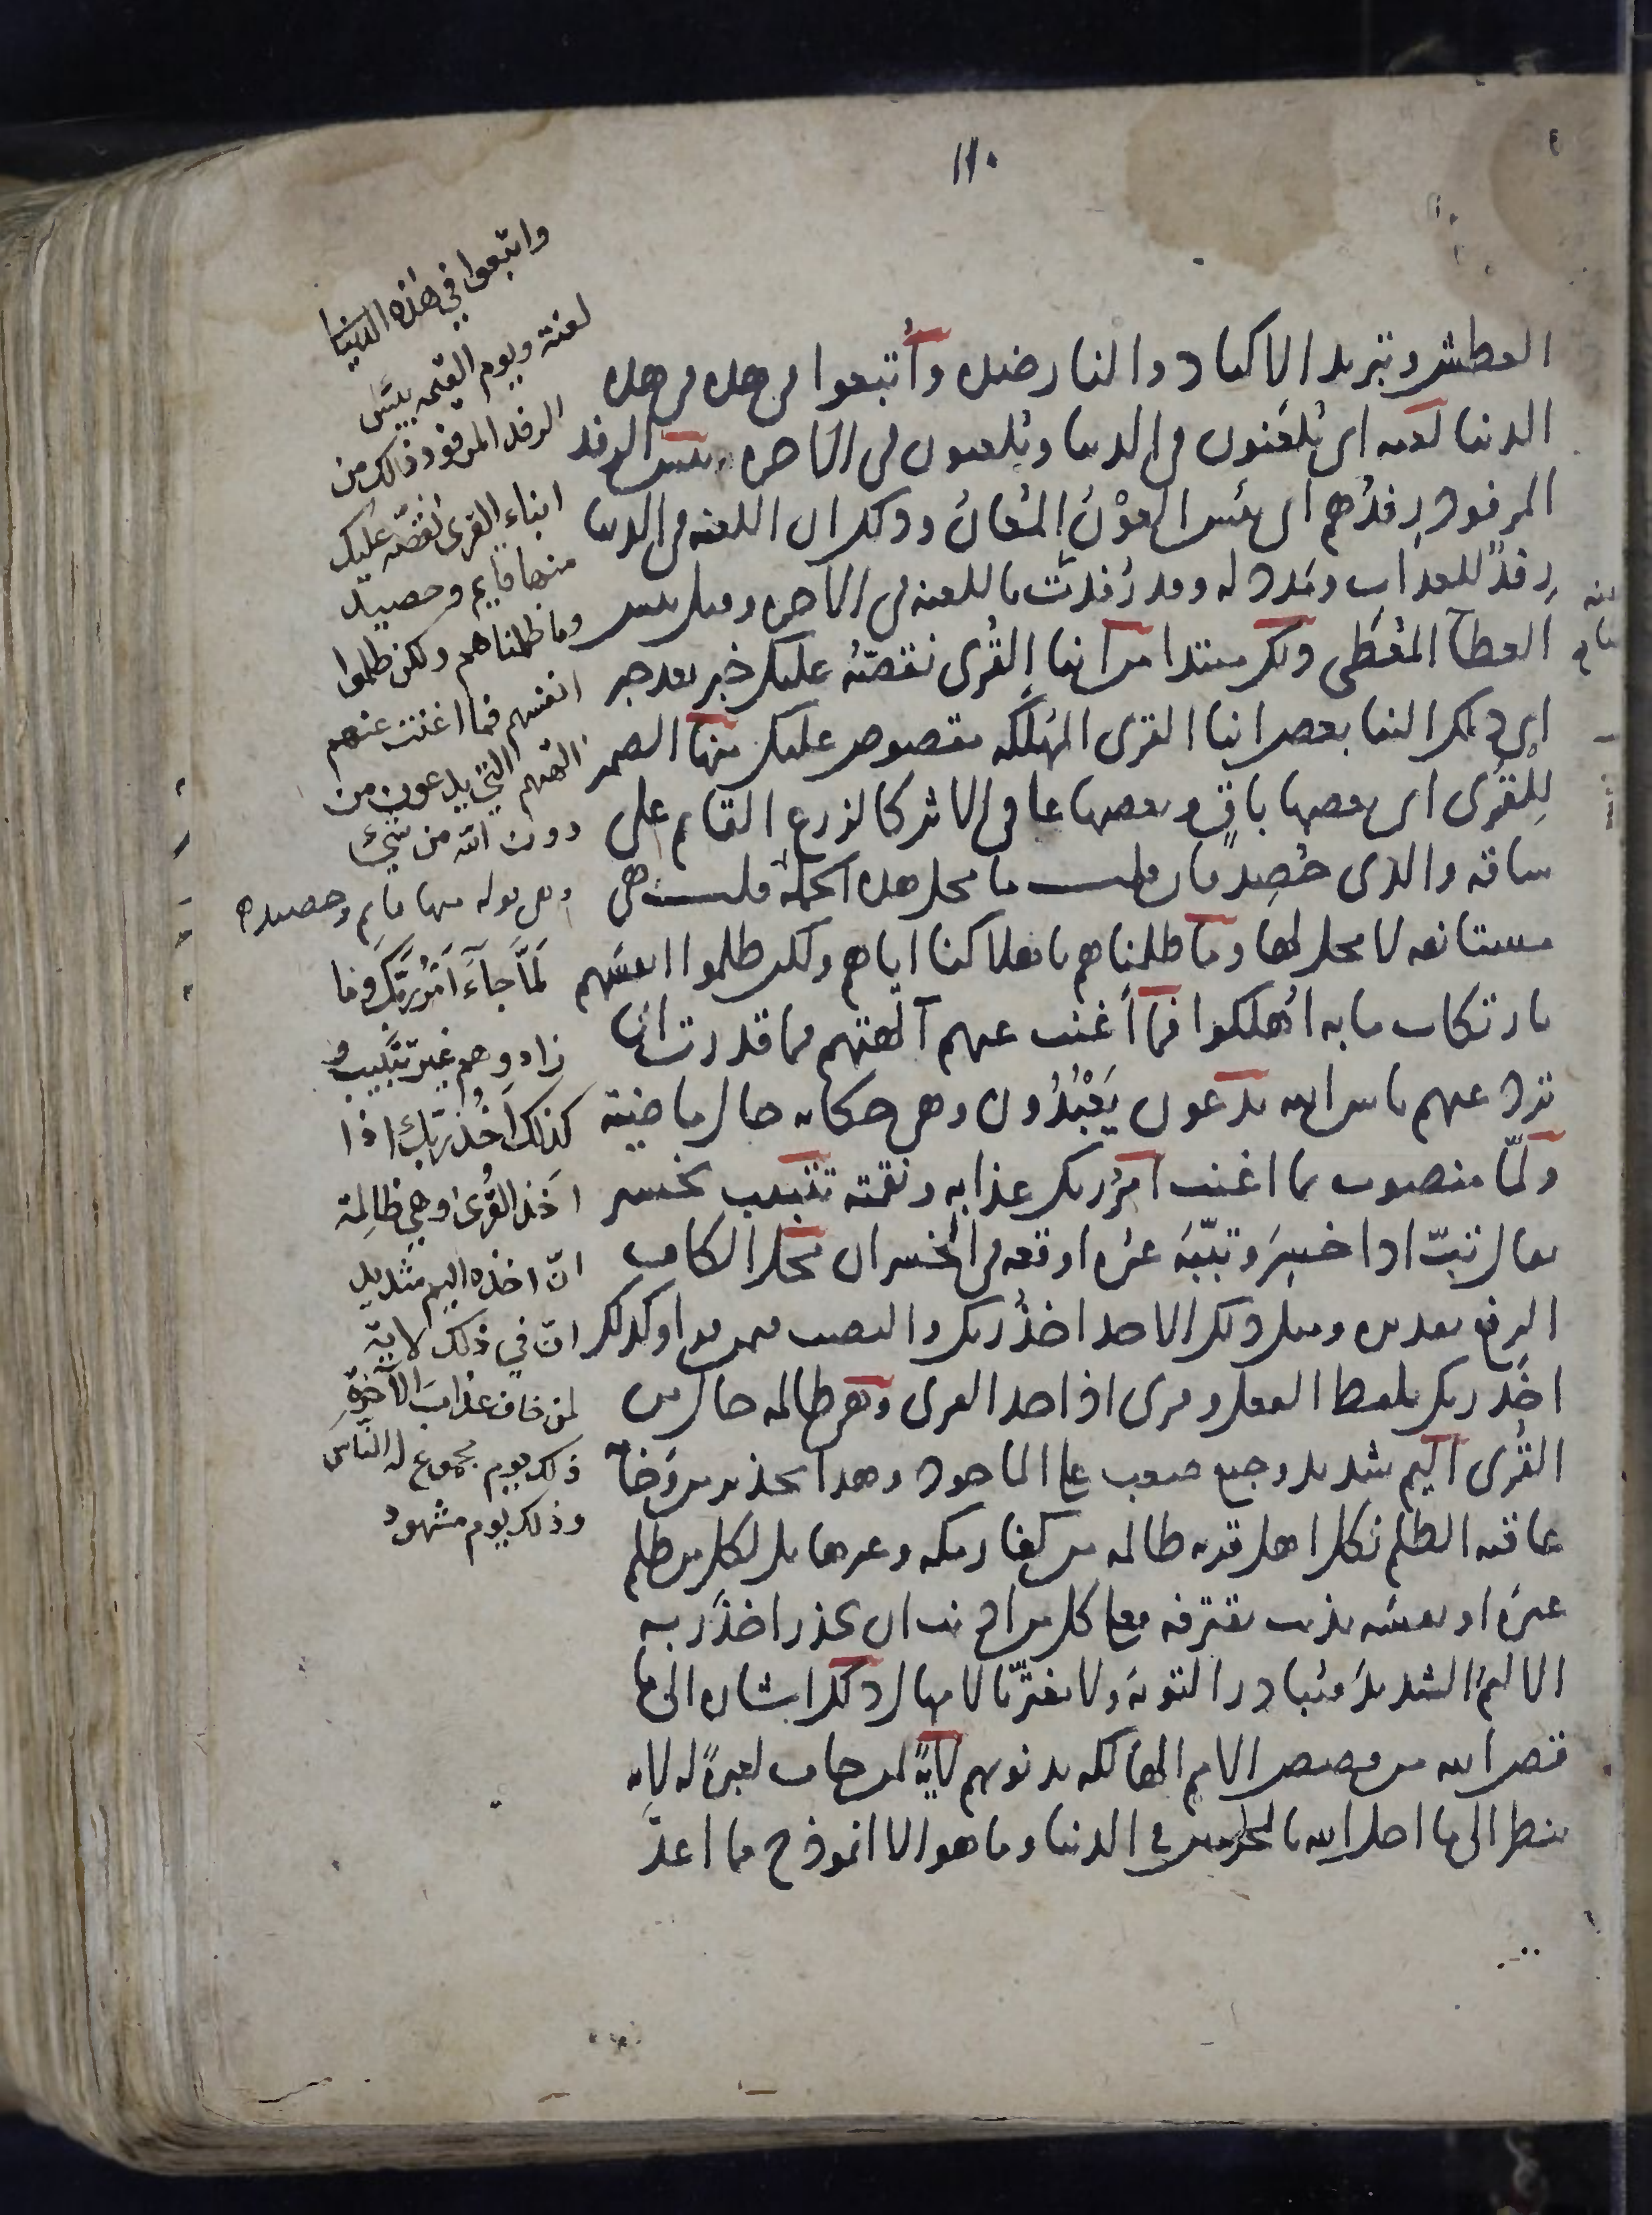 ١١٠
العطش وتبريد الاكباد والنار ضده وأتبعوا في هذه في هذه
الدنيا لعنه اى يُلعَنون في الدنيا ويُلعنون في الآخرة بئس الرفد
المرفود رفدُهم اى بئس العَوْنُ المُعَانُ وذلك ان اللعنه في الدنيا
رِفدٌ للعذاب ومَدد له وقد رُفدت باللعنه في الآخره وقيل بئس
العطاء المُعْطَى ذلك مبتدا من انباء القُرى نقصّه عليك خبر بعد خبر
اى ذلك النبا بعض انباء القرى المُهلَكه مقصوص عليك منها الضمير
لِلقُرى اى بعضها باقٍ وبعضها عافى الاثر كالزرع القايم على
ساقه والذى حُصِد فان قلت ما محل هذه الجمله قلت هى
مستانفه لا محل لها وما ظلمناهم باهلاكنا اياهم ولكن ظلموا انفسهم
بارتكاب ما به اُهلكوا فما أغنت عنهم آلهتهم فما قدرت ان
ترد عنهم باس الله يدعون يَعْبُدُون وهى حكايه حال ماضية
ولمّا منصوب بما اغنت امرُ ربك عذابه ونقمته تتبيب تخسير
يقال تبّ اذا خسِرَ وتبّبَه غيره اوقعه في الخسران محل الكاف
الرفع تقديره ومثل ذلك الاخذ اخذُ ربك والنصب فيمن قرا وكذلك
اخَذَ ربك بلفظ الفعل وقرى اذ اخذ القرى وهى ظالمه حال من
القُرى اليم شديد وجيع صعب على الماخوذ وهذا تحذير من وَخامة
عاقبه الظلم لكل اهل قريه ظالمه من كفار مكه وغيرها بل لكل من ظلم
غيرَه او نفسَه بذنب يقترفه فعلى كل من اذنب ان يحذر اخذَ ربه
الاليمَ الشديدَ فيُبادر التوبةَ ولا يغترّ بالامهال ذلك اشاره الى ما
قص الله من قصص الامم الهالكه بذنوبهم لآيةً لمن خاف لعبرةً له لانه
ينظر الى ما احل الله بالمجرمين في الدنيا وما هو الا انموذج مما اعدّ
واتبعوا في هذه الدنيا
لعنة ويوم القيمه بئس
الرفد المرفود ذالك من
انباء القرى نقصّه عليك
منها قايم وحصيد
وما ظلمناهم ولكن ظلموا
انفسهم فما اغنت عنهم
الهتهم التي يدعون من
دون الله من شئ
وهى قوله منها قايم وحصيد ه
لَمّا جآءَ اَمْرُ رَبِّكَ وما
زادوهم غير تتبيب و
كذلك اَخْذُ رَبِّكَ اذا
اخذ القُرىٰ وهي ظالِمة
انّ اخذه اليم شديد
انّ في ذلك لاية
لمن خاف عذابَ الآخِرَةِ
ذلك يوم مجموع له النّاس
وذلك يوم مشهود